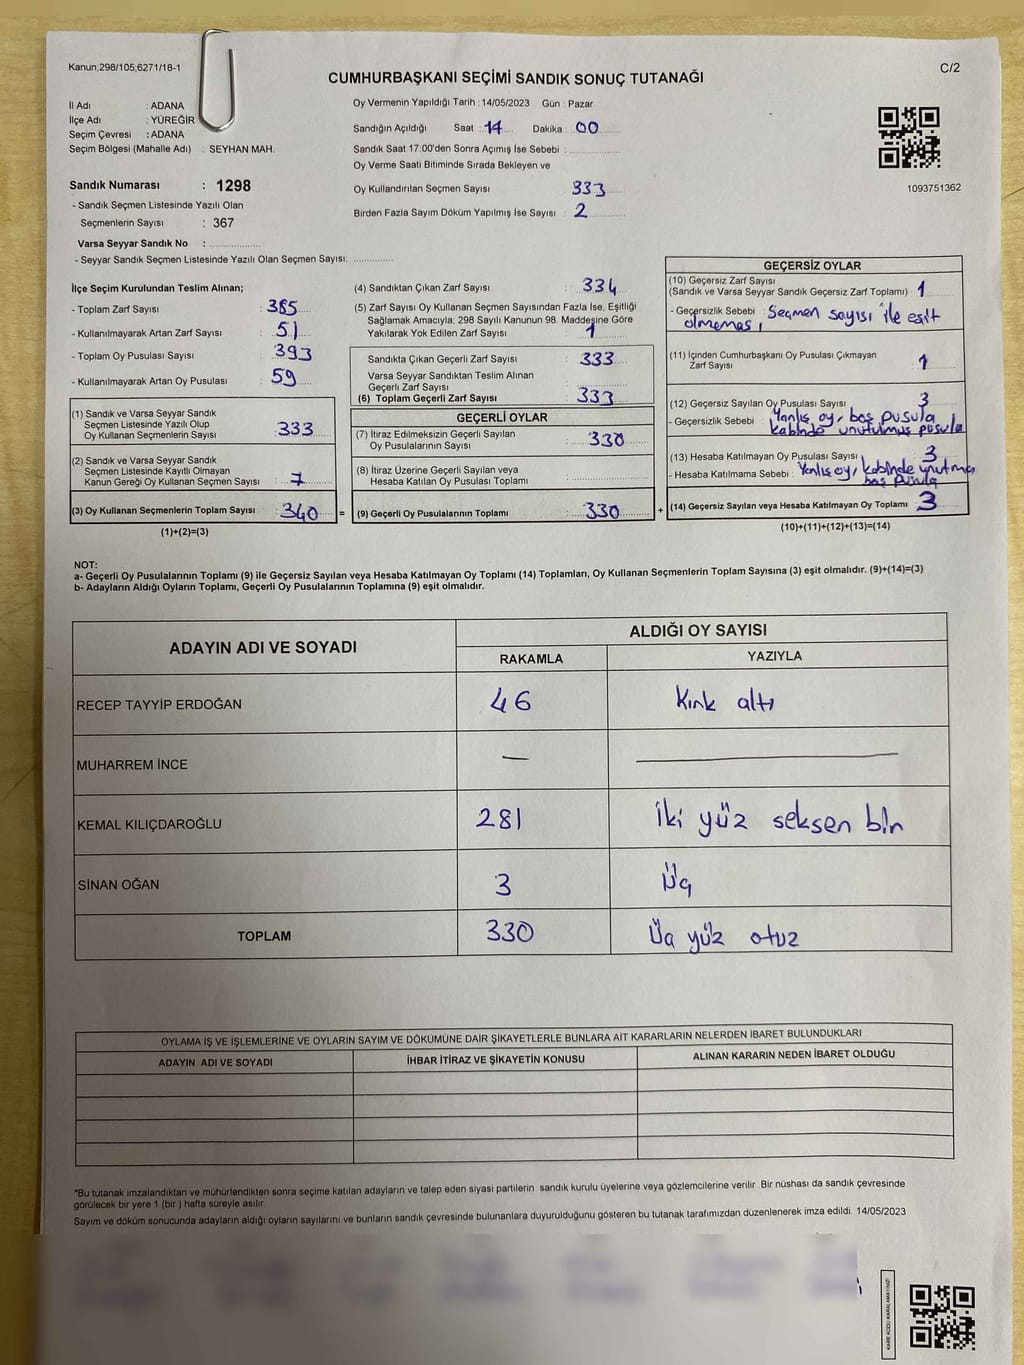 Kanun;298/105,6271/18-1
C/2
CUMHURBAŞKANI SEÇİMİ SANDIK SONUÇ TUTANAĞI
İl Adı : ADANA
İlçe Adı : YÜREĞİR
Seçim Çevresi : ADANA
Seçim Bölgesi (Mahalle Adı) : SEYHAN MAH.
Oy Vermenin Yapıldığı Tarih : 14/05/2023 Gün : Pazar
Sandığın Açıldığı Saat : 14 Dakika : 00
Sandık Saat 17:00'den Sonra Açımış İse Sebebi :
Oy Verme Saati Bitiminde Sırada Bekleyen ve
Oy Kullandırılan Seçmen Sayısı 333
Birden Fazla Sayım Döküm Yapılmış İse Sayısı : 2
1093751362
Sandık Numarası : 1298
- Sandık Seçmen Listesinde Yazılı Olan
Seçmenlerin Sayısı : 367
Varsa Seyyar Sandık No :
- Seyyar Sandık Seçmen Listesinde Yazılı Olan Seçmen Sayısı:
İlçe Seçim Kurulundan Teslim Alınan;
- Toplam Zarf Sayısı : 385
- Kullanılmayarak Artan Zarf Sayısı : 51
- Toplam Oy Pusulası Sayısı : 393
- Kullanılmayarak Artan Oy Pusulası : 59
(1) Sandık ve Varsa Seyyar Sandık
Seçmen Listesinde Yazılı Olup
Oy Kullanan Seçmenlerin Sayısı : 333
(2) Sandık ve Varsa Seyyar Sandık
Seçmen Listesinde Kayıtlı Olmayan
Kanun Gereği Oy Kullanan Seçmen Sayısı : 7
(3) Oy Kullanan Seçmenlerin Toplam Sayısı : 340 =
(1)+(2)=(3)
(4) Sandıktan Çıkan Zarf Sayısı : 334
(5) Zarf Sayısı Oy Kullanan Seçmen Sayısından Fazla İse, Eşitliği
Sağlamak Amacıyla, 298 Sayılı Kanunun 98. Maddesine Göre
Yakılarak Yok Edilen Zarf Sayısı : 1
Sandıkta Çıkan Geçerli Zarf Sayısı : 333
Varsa Seyyar Sandıktan Teslim Alınan
Geçerli Zarf Sayısı
(6) Toplam Geçerli Zarf Sayısı : 333
GEÇERLİ OYLAR
(7) İtiraz Edilmeksizin Geçerli Sayılan
Oy Pusulalarının Sayısı : 330
(8) İtiraz Üzerine Geçerli Sayılan veya
Hesaba Katılan Oy Pusulası Toplamı :
(9) Geçerli Oy Pusulalarının Toplamı : 330 +
GEÇERSİZ OYLAR
(10) Geçersiz Zarf Sayısı
(Sandık ve Varsa Seyyar Sandık Geçersiz Zarf Toplamı) : 1
- Geçersizlik Sebebi : Seçmen sayısı ile eşit
olmaması
(11) İçinden Cumhurbaşkanı Oy Pusulası Çıkmayan
Zarf Sayısı : 1
(12) Geçersiz Sayılan Oy Pusulası Sayısı : 3
- Geçersizlik Sebebi : Yanlış oy, boş pusula
kabinde unutulmuş pusula
(13) Hesaba Katılmayan Oy Pusulası Sayısı : 3
- Hesaba Katılmama Sebebi : Yanlış oy, kabinde unutma
boş pusula
(14) Geçersiz Sayılan veya Hesaba Katılmayan Oy Toplamı : 3
(10)+(11)+(12)+(13)=(14)
NOT:
a- Geçerli Oy Pusulalarının Toplamı (9) ile Geçersiz Sayılan veya Hesaba Katılmayan Oy Toplamı (14) Toplamları, Oy Kullanan Seçmenlerin Toplam Sayısına (3) eşit olmalıdır. (9)+(14)=(3)
b- Adayların Aldığı Oyların Toplamı, Geçerli Oy Pusulalarının Toplamına (9) eşit olmalıdır.
ADAYIN ADI VE SOYADI
ALDIĞI OY SAYISI
RAKAMLA YAZIYLA
RECEP TAYYİP ERDOĞAN 46 Kırk altı
MUHARREM İNCE —
KEMAL KILIÇDAROĞLU 281 iki yüz seksen bir
SİNAN OĞAN 3 Üç
TOPLAM 330 Üç yüz otuz
OYLAMA İŞ VE İŞLEMLERİNE VE OYLARIN SAYIM VE DÖKÜMÜNE DAİR ŞİKAYETLERLE BUNLARA AİT KARARLARIN NELERDEN İBARET BULUNDUKLARI
ADAYIN ADI VE SOYADI İHBAR İTİRAZ VE ŞİKAYETİN KONUSU ALINAN KARARIN NEDEN İBARET OLDUĞU
*Bu tutanak imzalandıktan ve mühürlendikten sonra seçime katılan adayların ve talep eden siyasi partilerin sandık kurulu üyelerine veya gözlemcilerine verilir .Bir nüshası da sandık çevresinde
görülecek bir yere 1 (bir ) hafta süreyle asılır
Sayım ve döküm sonucunda adayların aldığı oyların sayılarını ve bunların sandık çevresinde bulunanlara duyurulduğunu gösteren bu tutanak tarafımızdan düzenlenerek imza edildi. 14/05/2023
KARE KODU KARALAMAYINIZ!